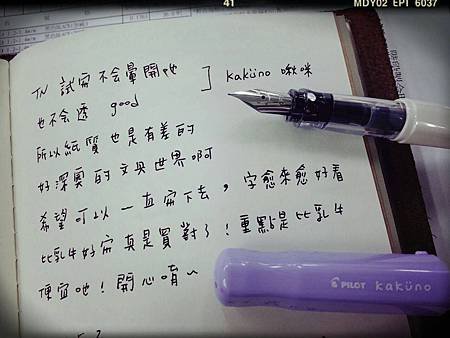 41 MDY02 EPI 6037
TN 試寫不會暈開吔 ] kaküno 啾咪
也不會透 good
所以紙質也是有差的
好深奧的文具世界啊
希望可以一直寫下去，字愈來愈好看
比乳牛好寫真是買對了！重點是比乳牛
便宜吔！開心唷~
PILOT kaküno